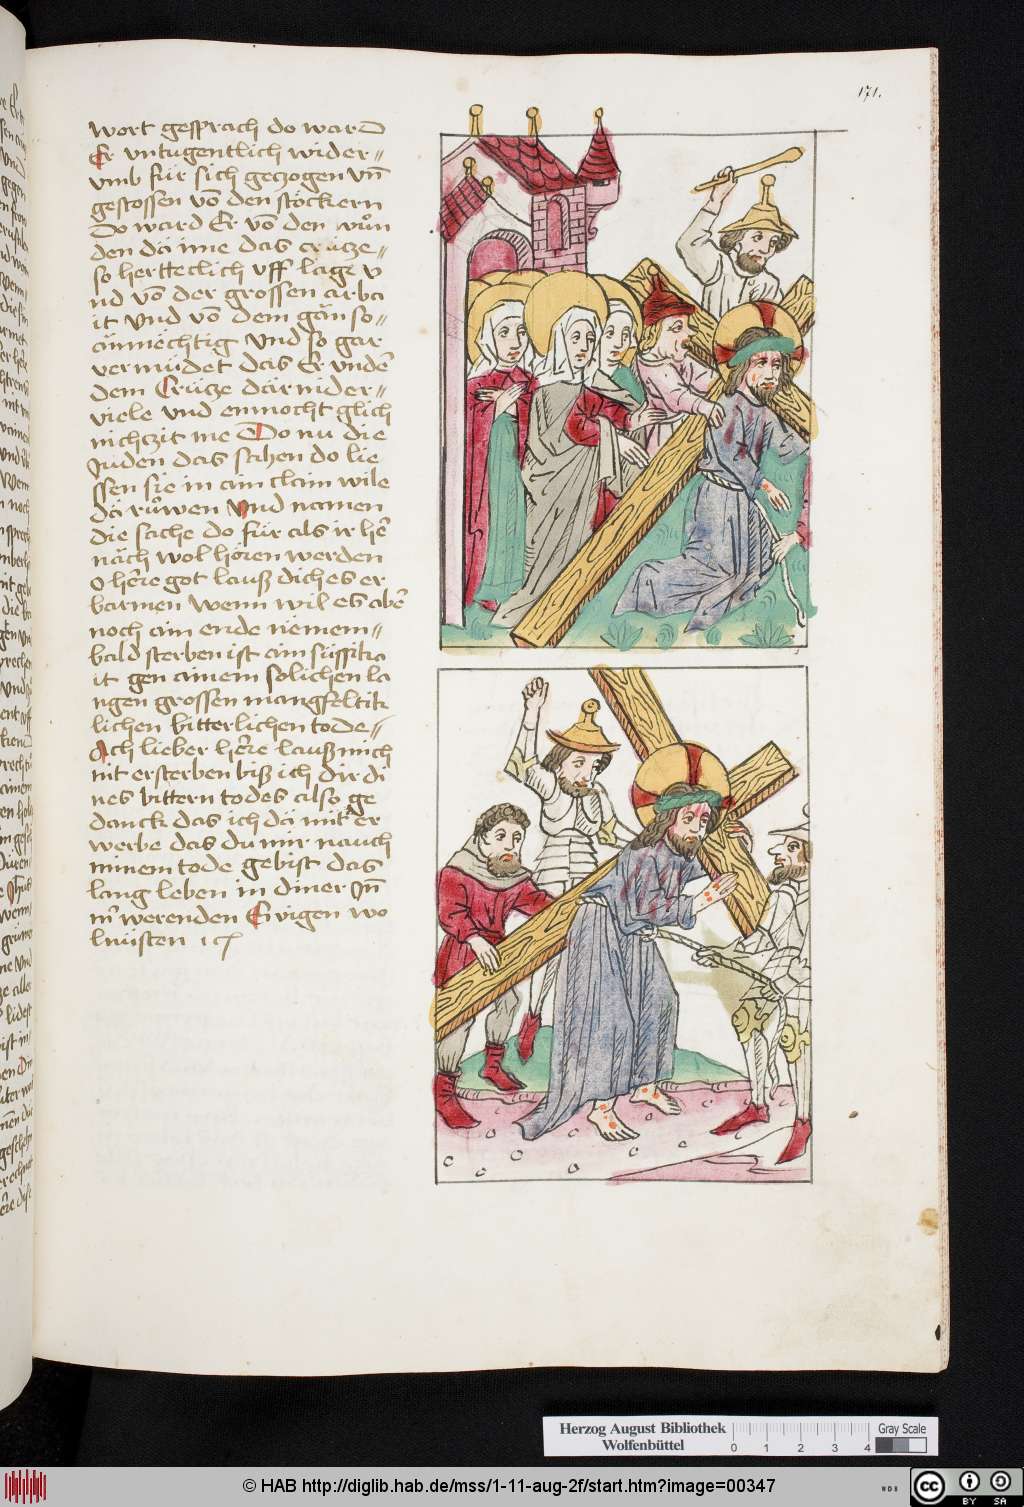 171.
wort gesprach do ward
Er vntugentlich wider〃
vmb für sich gezogen vn̄
gestossen vō den stöckern
Do ward Er vō den wůn
den dā īme das crütze〃
so hertteclich vff lage v
nd vō der grossen arba
it vnd vō dem gän so〃
āmnēchtig vnd so gar
vermüdet das Er vnder
dem Crütze dar nider〃
viele vnd ennocht glich
nichzit me Do nu die
Juden das sahen do lie
ssen sie in ain clain wile
dā růwen vnd namen
die sache do für als ir he᷑
nāch wol hören werden
o he᷑re got lauß dich es er
barmen wenn wil es abe᷑
noch ain ende nemem〃
bald sterben ist ain süssika
it gen ainem solichen la
ngen grossen mangfeltik
lichen bitterlichen tode〃
Ach lieber he᷑re lauß mich
nit ersterben biß ich dir di
nes bittern todes also ge
danck das ich dā mit er
werbe das du mir nauch
minem tode gebist das
lang leben in diner
werenden Ewigen wo
lnüsten
Herzog August Bibliothek
Wolfenbüttel
0 1 2 3 4
Gray Scale
© HAB http://diglib.hab.de/mss/1-11-aug-2f/start.htm?image=00347
WDB
CC BY SA